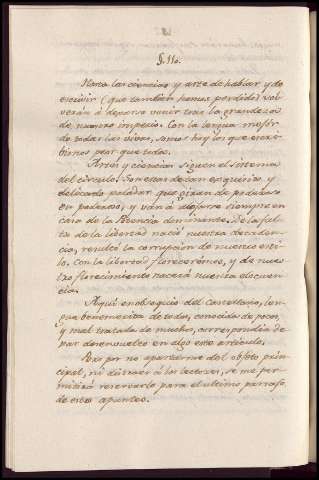 §. 110.
Hasta las ciencias y arte de hablar y de
escrivir (que tambien hemos perdido) vol-
verán á dejarse venir tras la grandeza
de nuestro imperio. Con la lengua maestra
de todas las vivas, somos hoy los que escri-
bimos peor que todos.
Artes y ciencias siguen el sistema
del círculo. Son estas de tan exquisito y
delicado paladar que giran de poderoso
en poderoso, y ván á alojarse siempre en
casa de la Potencia dominante. De la fal-
ta de la libertad nació nuestra decaden-
cia, resultó la corrupcion de nuestro esti-
lo. Con la libertad florecerémos, y de nues-
tro florecimiento nacerá nuestra elocuen-
cia.
Aquí en obsequio del Castellano, len-
gua benemerita de todos, conocida de pocos,
y mal tratada de muchos, correspondia de-
xar desenvuelto en algo este artículo.
Pero por no apartarme del objeto prin-
cipal, ni distraer á los lectores, se me per-
mitirá reservarlo para el ultimo parrafo
de estos apuntes.